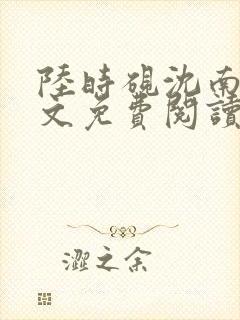 陸時硯沈南
文免費閱讀
澀之余